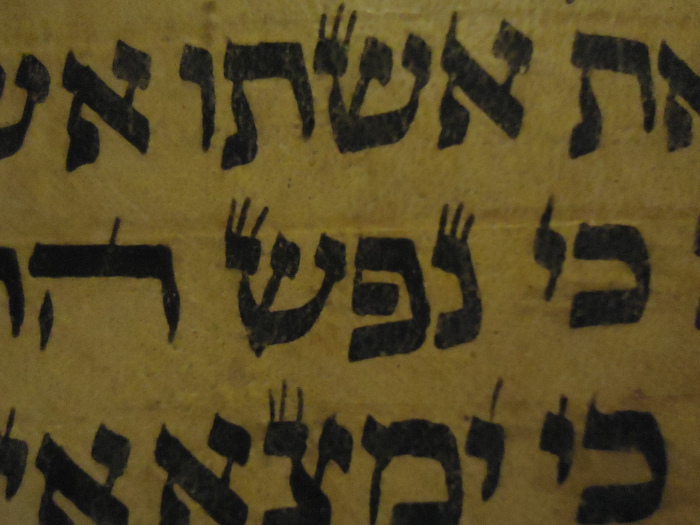 את אשתו אש
כי נפש הו
כי ימצא אי